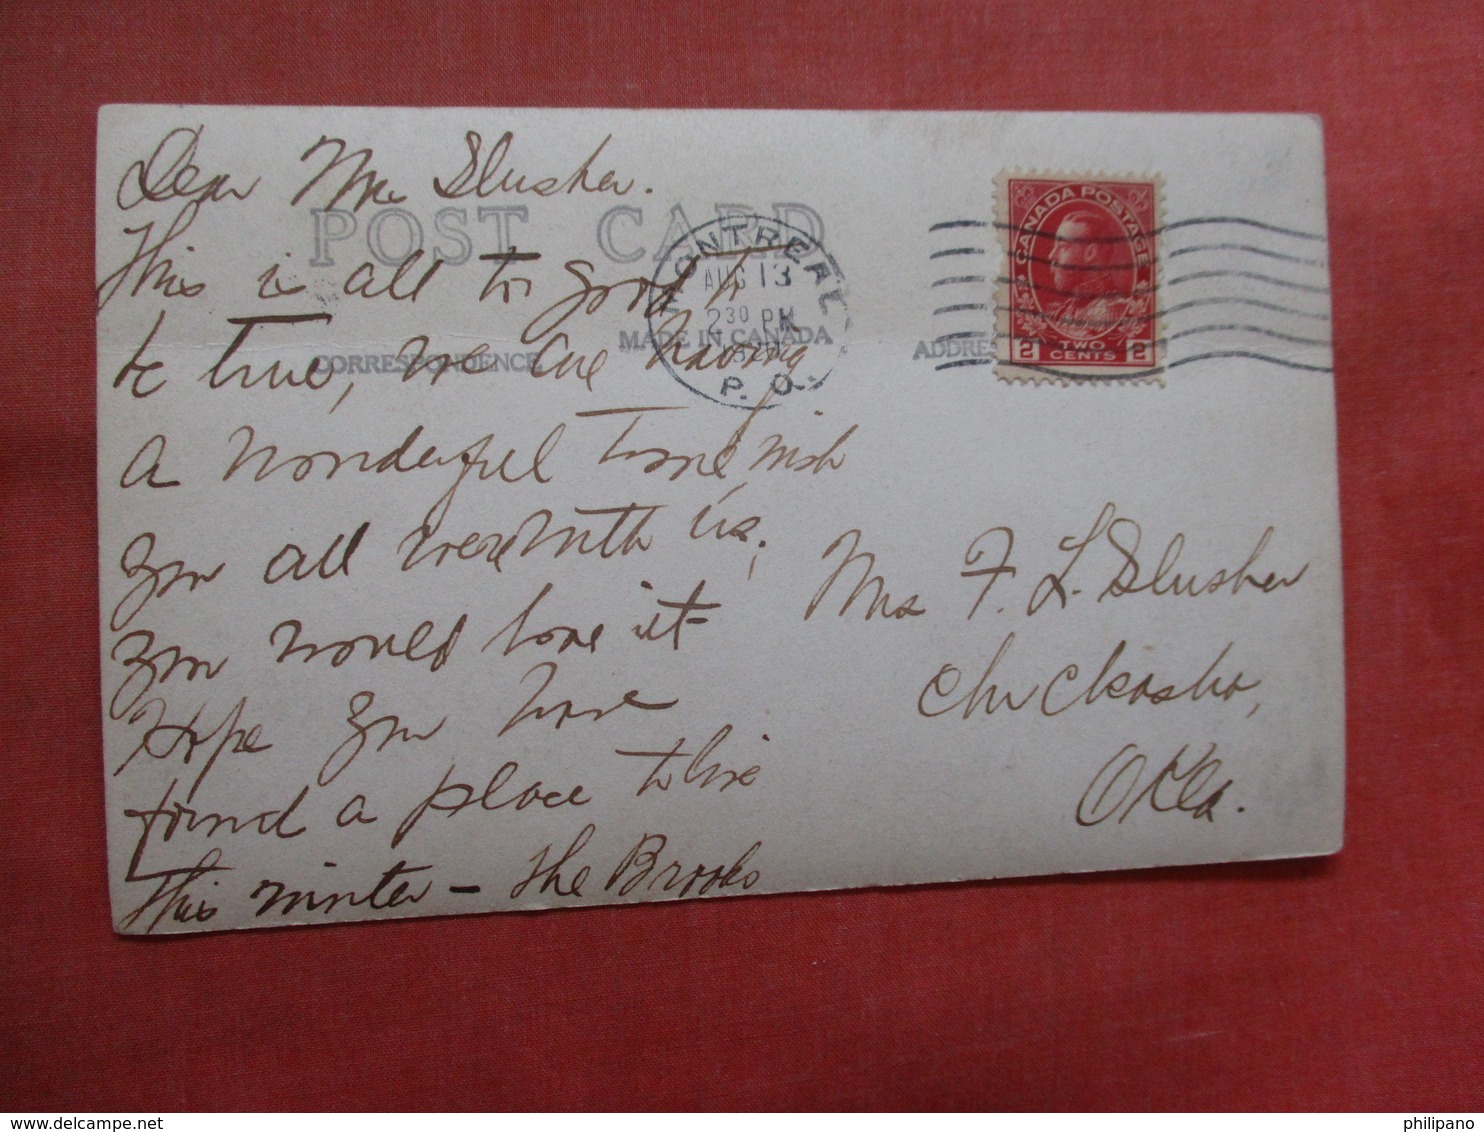 Dear Mrs Slusher.
POST CARD
This is all to good to
MONTREAL
AUG 13
2 30 PM
P. O.
CANADA POSTAGE
2 TWO CENTS 2
MADE IN CANADA
CORRESPONDENCE
ADDRE
be true, we are having
a wonderful time, wish
you all were with us,
you would love it
Hope you have
found a place to live
this winter – The Brooks
Mrs F. L. Slusher
Chickasha,
Okla.
philipano
www.delcampe.net